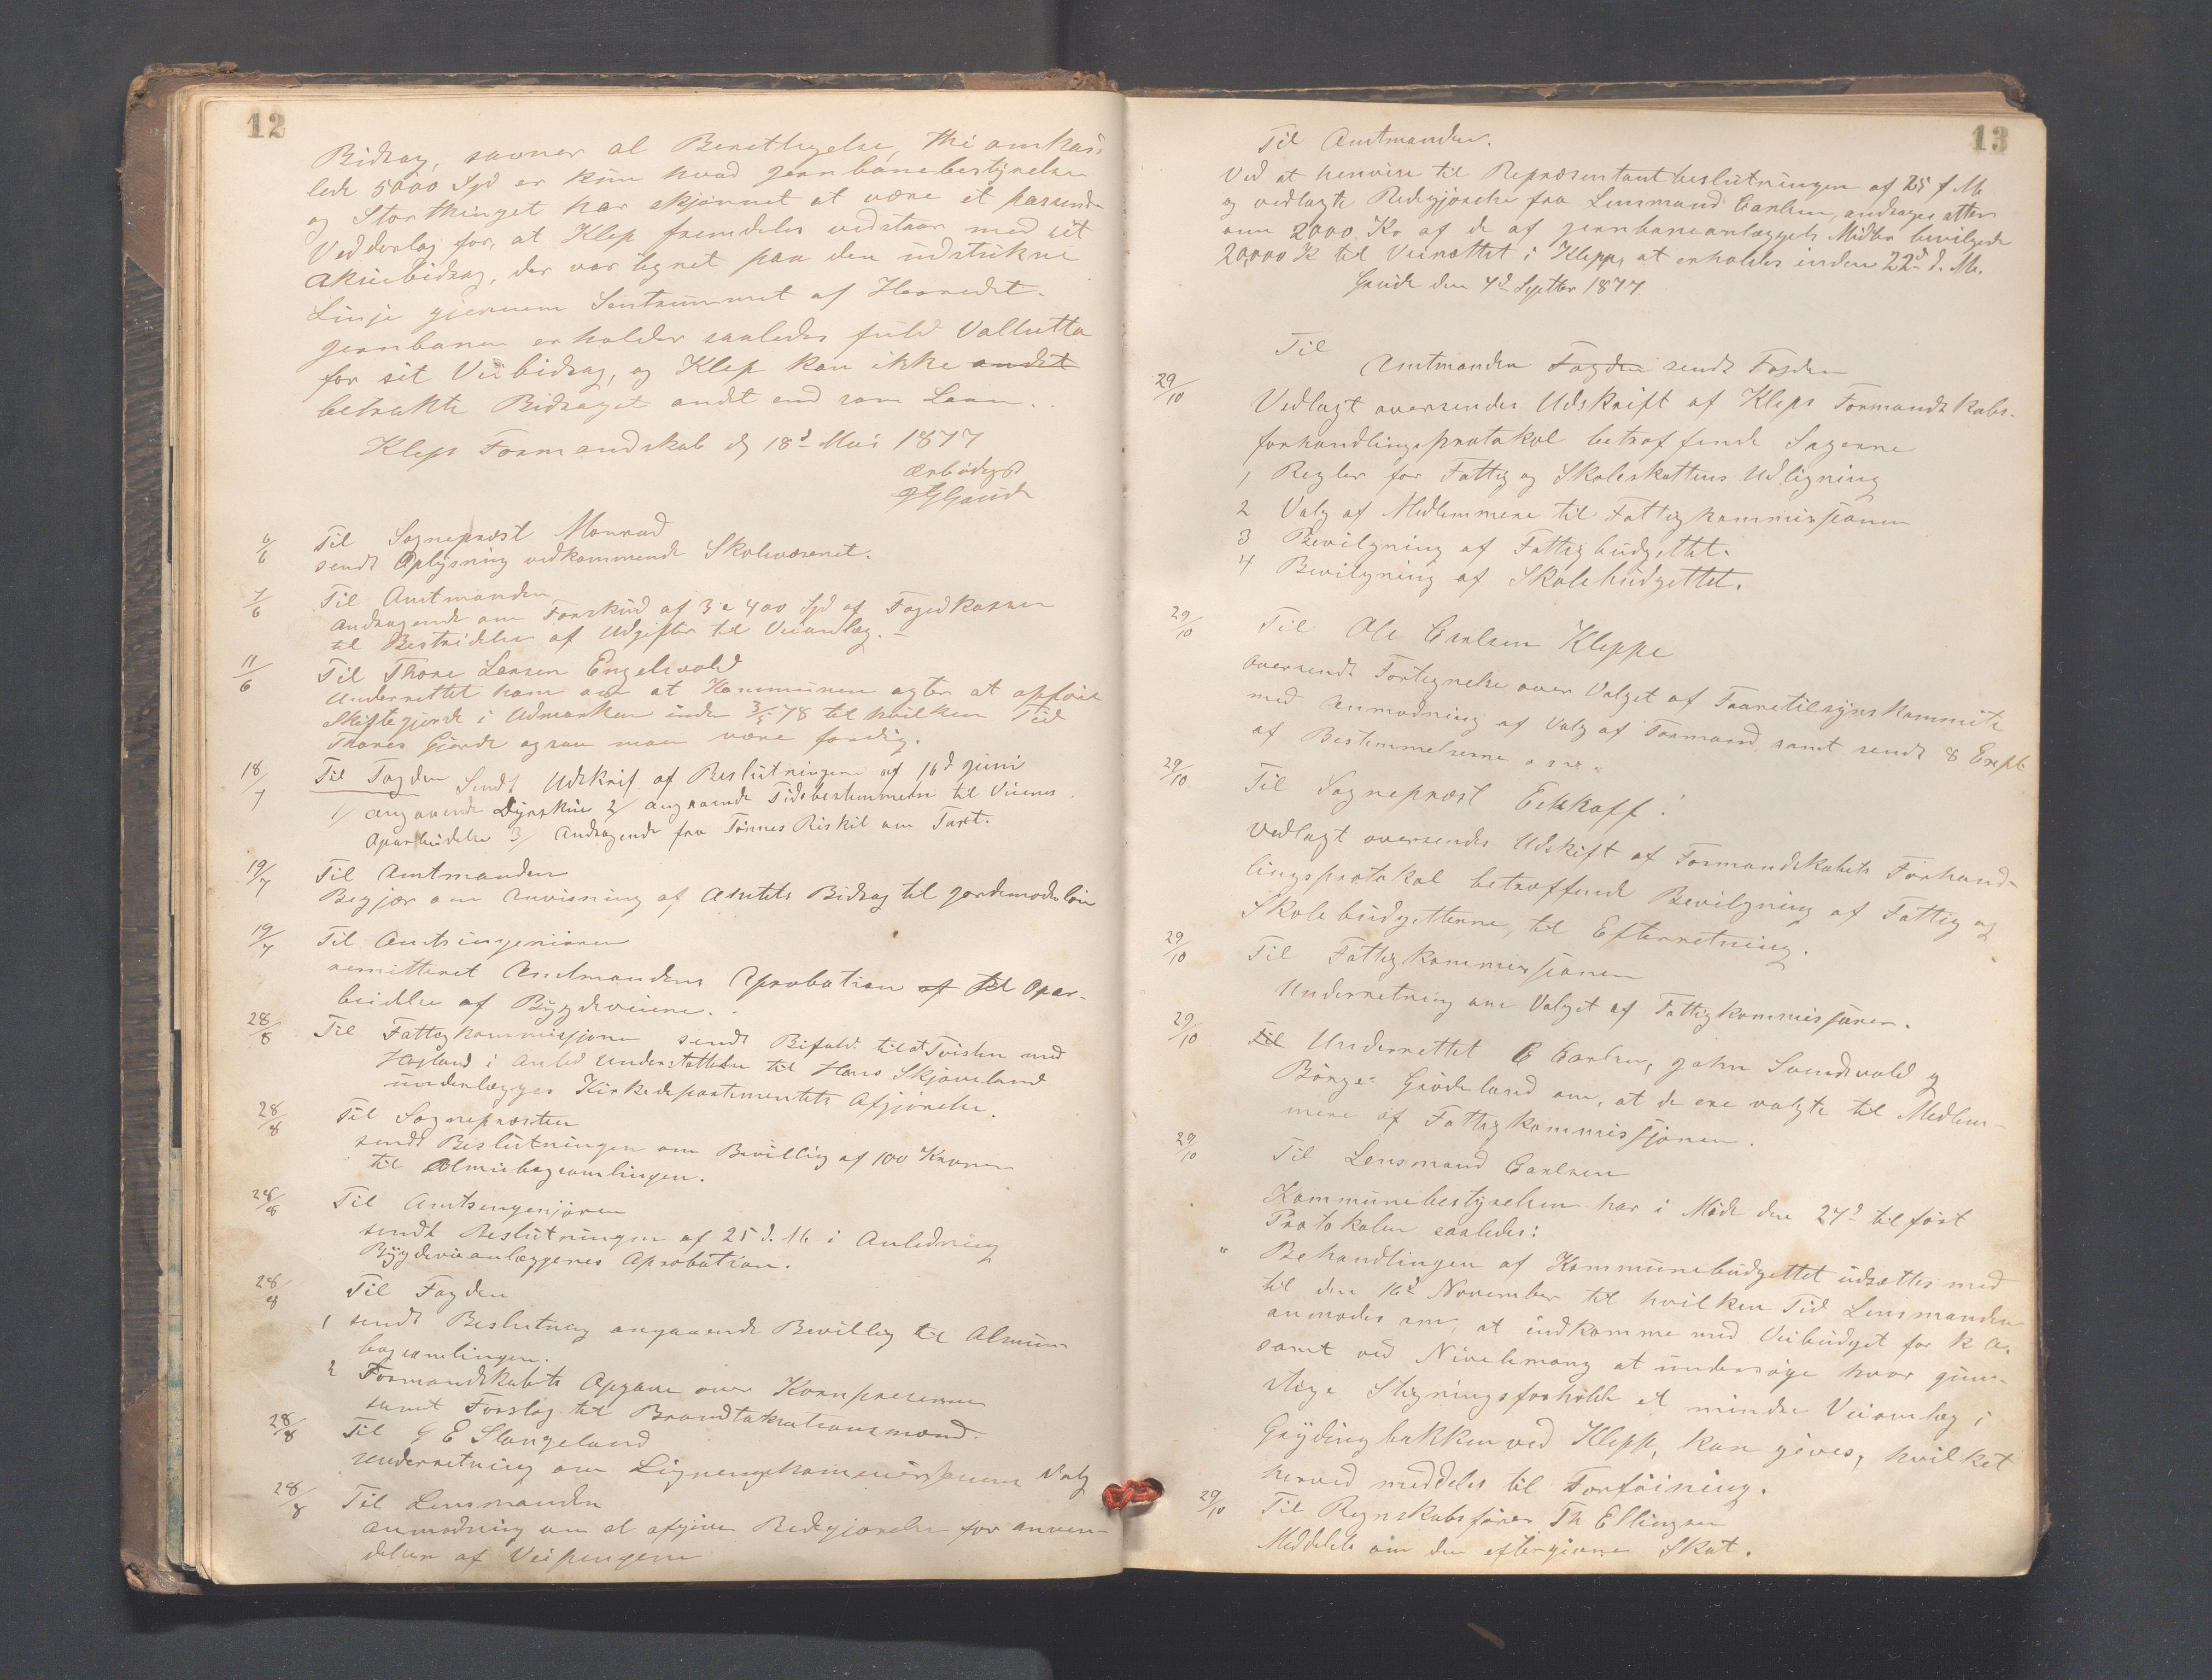 12
Bidrag, savner al Berettigelse, thi omhand-
lede 5000 Spd er kun hvad Jernbanebestyrelsen
og Storthinget har skjønnet at være et passende
Vedderlag for, at Klep fremdeles vedstaar med sit
Aktiebidrag, der var tegnet paa den udstukne
Linje gjennem Sentrummet af Herredet.
Jernbanen erholder saaledes fuld Vallutta
for sit Veibidrag, og Klep kan ikke andet
betrakte Bidraget andt end som Laan.
Klep Formandskab d 18d Mai 1877
Ærbødigst
6/6 Til Sogneprest Monrad
sendt Oplysning vedkommende Skolevæsenet.
7/6 Til Amtmanden
Andragende om Forskud af 3 a 400 Spd af Fogedkassen
til Bestridelse af Udgifter til Veianlæg.
11/6 Til Thore Larsen Engelsvold
Underrettet ham om at Kommunen agter at opføre
Skiftegjerde i Udmarken inden 3/5 78 til hvilken Tid
Thores Gjerde ogsaa maa være færdig.
18/7 Til Fogden Sendt Udskrift af Beslutningene af 16d Juni
1/ angaaende Dyrskue 2/ angaaende Tidsbestemmelse til Veienes
Oparbeidelse 3/ Andragende fra Tønnes Riskil om
19/7 Til Amtmanden
Begjær om Anvisning af Amtets Bidrag til Jordemoderløn
19/7 Til Amtsingeniøren
remitteret Amtmandens Aprobation af til Opar-
beidelse af Bygdeveiene.
28/8 Til Fattigkommissjonen sendt Bifald til at Tvisten med
Høiland i Anled Understøttelse til Hans Skjæveland
underlægges Kirkedepartimentets Afgjørelse.
28/8 Til Sognepresten
sendt Beslutningen om Bevillig af 100 Kroner
til Almuebogsamlingen.
28/8 Til Amtsingeniøren
sendt Beslutningen af 25 d. M. i Anledning
Bygdeveianlæggenes Aprobation.
28/8 Til Fogden
1 sendt Beslutning angaaende Bevillig til Almue-
bogsamlingen.
2 Formandskabets Opgave over Kornpriserne
samt Forslag til Brandtakstionsmænd.
28/8 Til G E Slangeland
Underretning om Ligningskommissionens Valg
28/8 Til Lensmanden
Anmodning om at afgive Redegjørelse for anven-
delsen af Veipengene
13
Til Amtmanden.
Ved at henvise til Repræsentantbeslutningen af 25 f M.
og vedlagte Redegjørelse fra Lensmand Carlsen, andrages atter
om 2000 Kr af de af Jernbaneanlæggets Midler bevilgede
20,000 K til Veinættet i Klepp, at erholdes inden 22d d. M.
Grude den 4d Septbr 1877.
Til
Amtmanden Fogden sendt Fogden
29/10 Vedlagt oversendes Udskrift af Kleps Formandskabs-
forhandlingsprotokol betræffende Sagerne
1 Regler for Fattig og Skoleskattens Udligning
2 Valg af Medlemmene til Fattigkommissjonen
3 Bevilgning af Fattigbudgettet.
4 Bevilgning af Skolebudgettet.
29/10 Til Ole Carlsen Kleppe
oversendt Fortegnelse over Valget af Faaretilsynskommite
med Anmodning af Valg af Formand, samt sendt 8 Expl
af Bestemmelserne
29/10 Til Sogneprest Eckhoff!
Vedlagt oversendes Udskift af Formandskabets Forhand-
lingsprotokol betræffende Bevilgning af Fattig og
Skolebudgetterne, til Efterretning.
29/10 Til Fattigkommissjonen
Underretning om Valget af Fattigkommissjonen.
29/10 Til Underrettet C Carlsen, John Sandvold og
Børge Grødeland om, at de ere valgte til Medlem-
mene af Fattigkommissjonen.
29/10 Til Lensmand Carlsen
Kommunebestyrelsen har i Møde den 27d tilført
Protokolen saaledes:
" Behandlingen af Kommunebudgettet udsættes med
til den 16d November til hvilken Tid Lensmanden
anmodes om, at indkomme med Veibudget for k A.
samt ved Nivelemang at undersøge hvor gun-
stige Stigningsforholde et mindre Veianlæg i
Grydingbakken ved Klepp, kan gives, hvilket
herved meddeles til Forføining.
29/10 Til Regnskabsfører Th Ellingsen
Meddelelse om den eftergivne Skat.